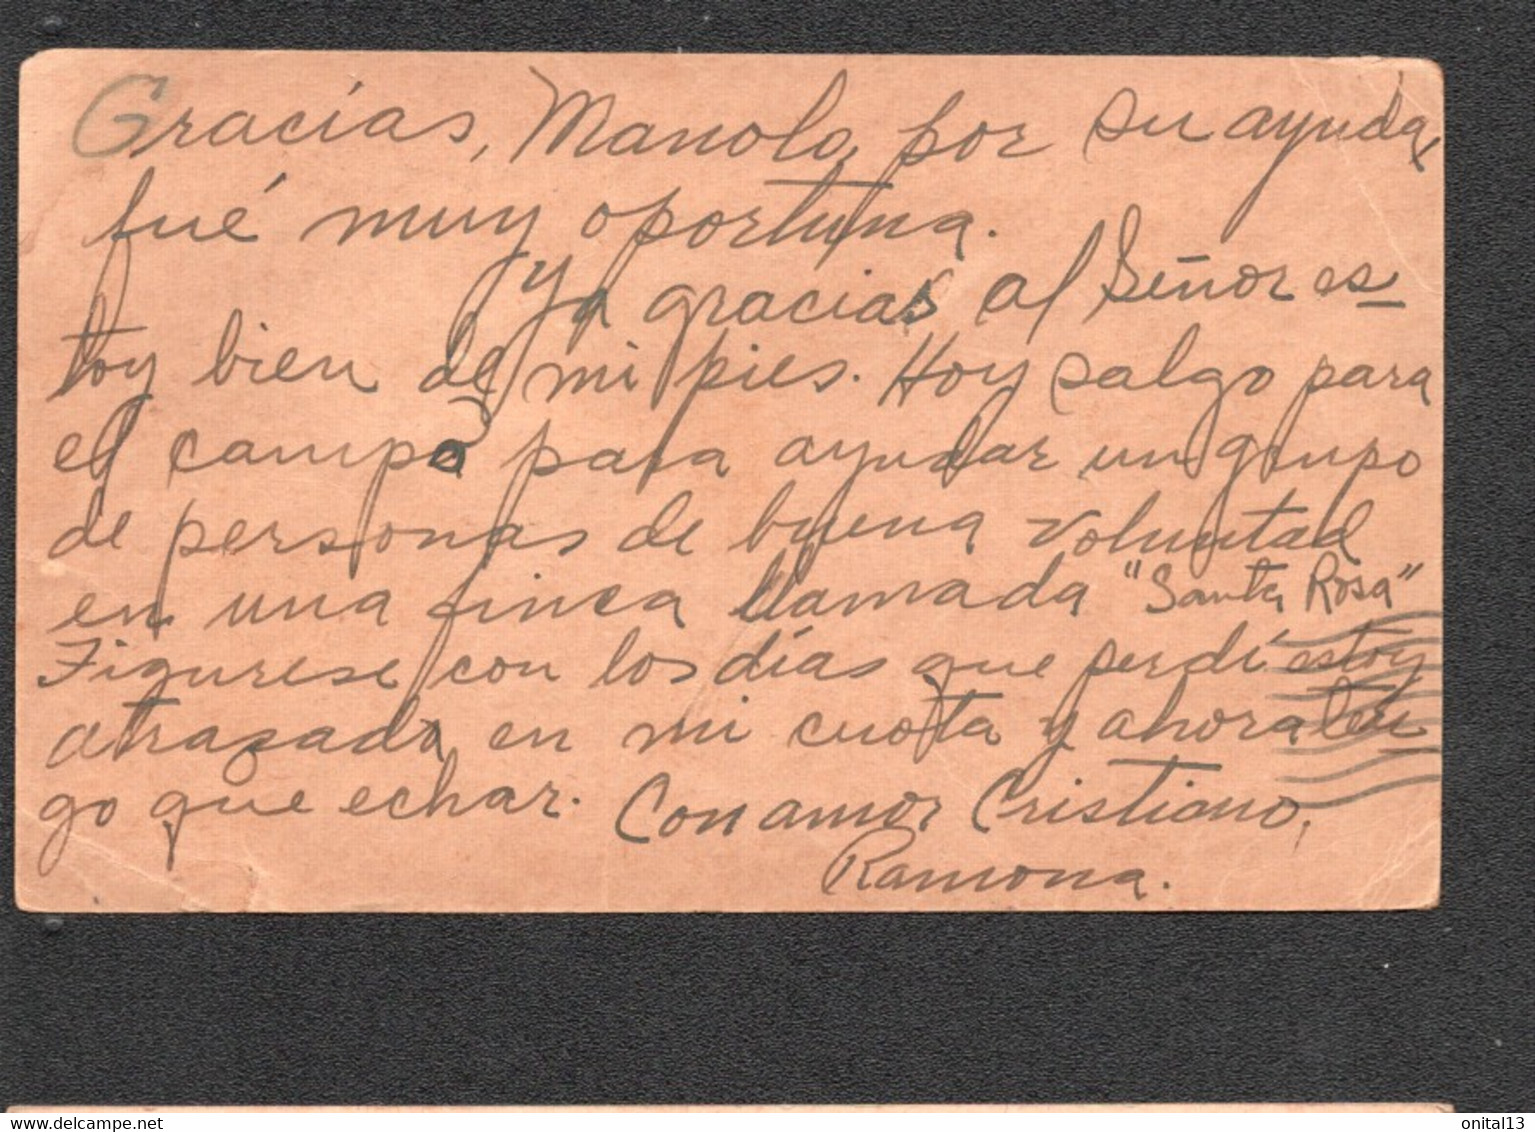 Gracias, Manolo, por su ayuda,
fué muy oportuna.
Ya gracias al Señor es-
toy bien de mi pies. Hoy salgo para
el campo para ayudar un grupo
de personas de buena voluntad
en una finca llamada "Santa Rosa"
Figurese con los días que perdí estoy
atrazada en mi cuota y ahora ten
go que echar. Con amor Cristiano,
Ramona.
delcampe.net
onital13